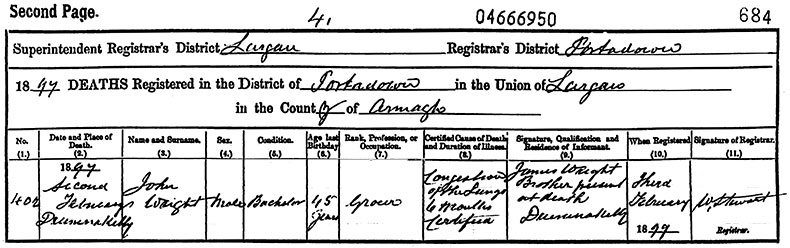 Second Page. 4. 04666950 684
Superintendent Registrar's District Lurgan Registrar's District Portadown
1897 DEATHS Registered in the District of Portadown in the Union of Lurgan
in the County of Armagh
No. (1.) Date and Place of Death. (2.) Name and Surname. (3.) Sex. (4.) Condition. (5.) Age last Birthday (6.) Rank, Profession, or Occupation. (7.) Certified Cause of Death and Duration of Illness. (8.) Signature, Qualification and Residence of Informant. (9.) When Registered (10.) Signature of Registrar. (11.)
402
1897
Second
February
Drumnakelly
John
Wright
Male
Bachelor
45
years
Grocer
Congestion
of the Lungs
6 Months
Certified
James Wright
Brother present
at death
Drumnakelly
Third
February
1897
W. Stewart
Registrar.